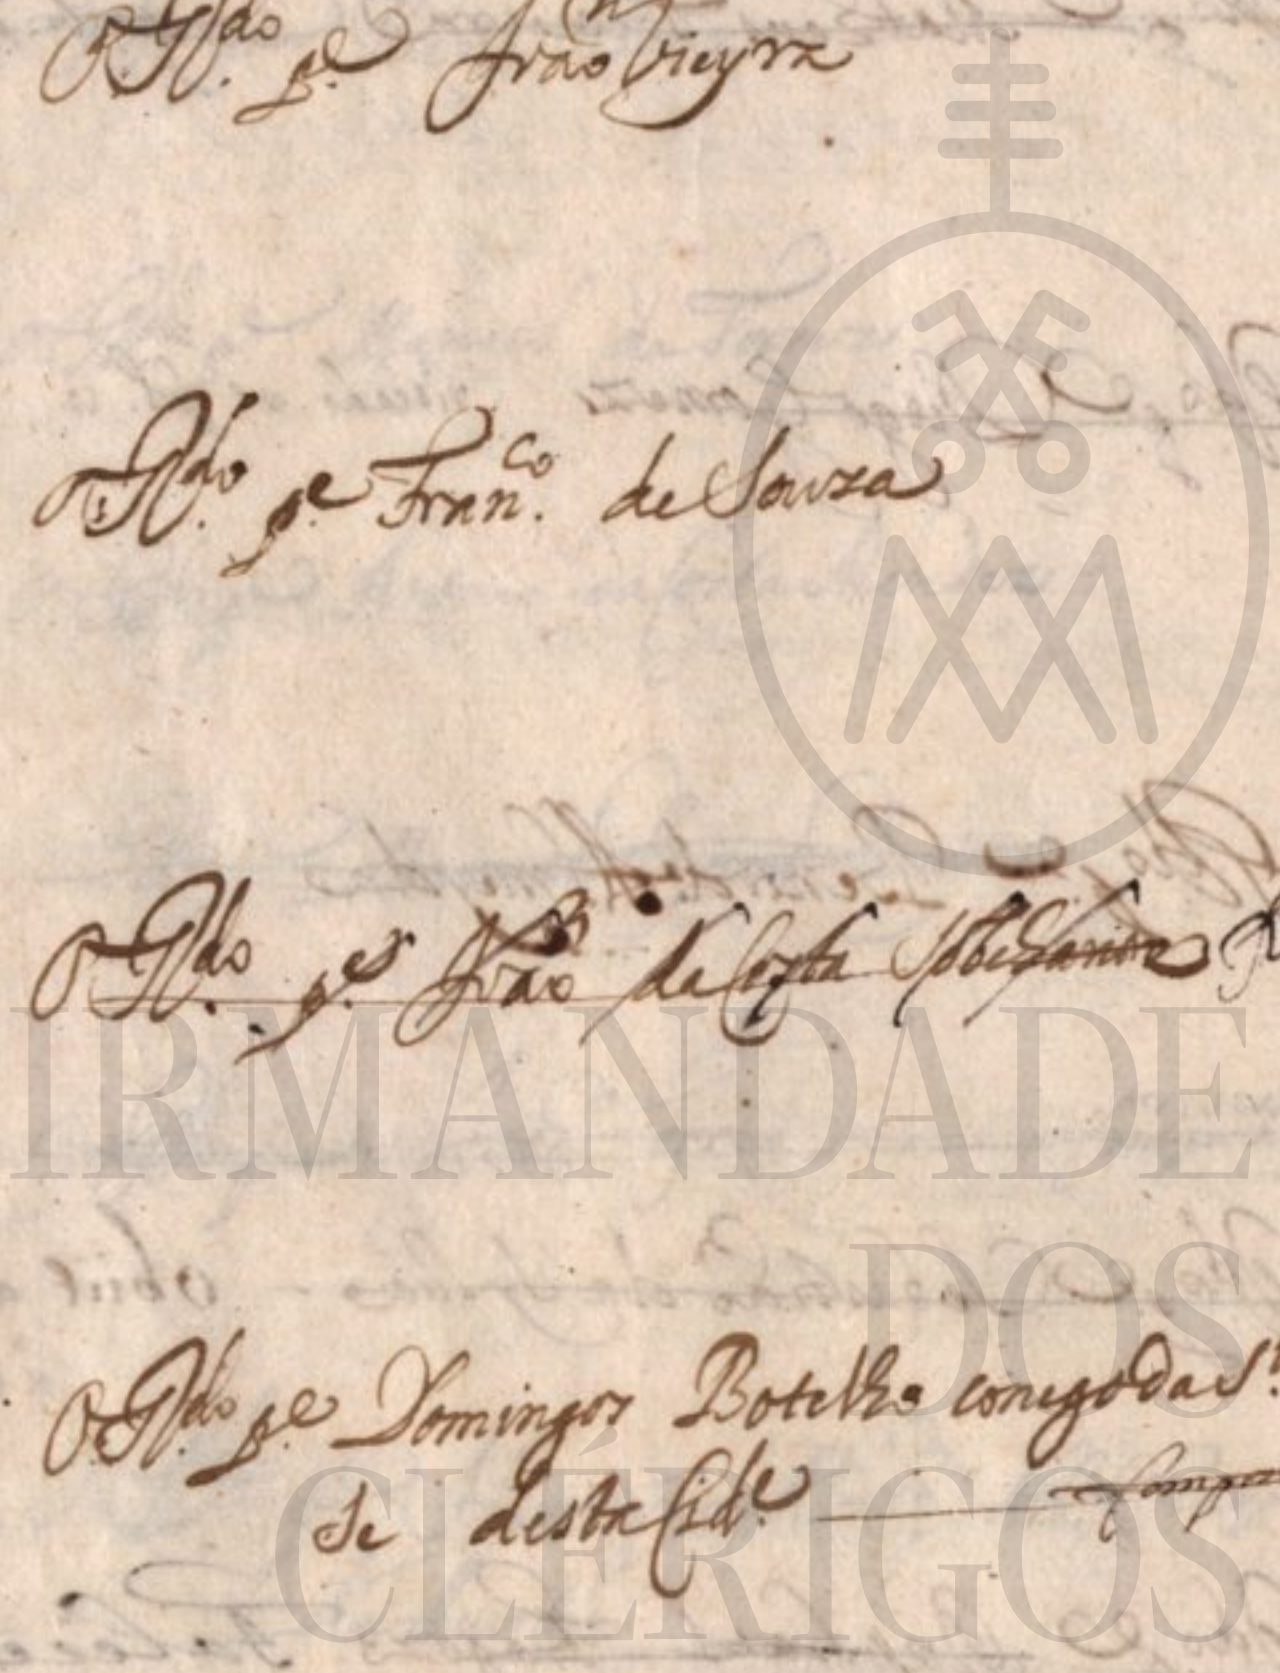 O R.do P.e João Vieyra
O R.do P.e Fran.co de Souza
O R.do P.e João da Costa
O R.do P.e Domingos Botelho conego da S.ta
Se desta Cid.e
IRMANDADE
DOS
CLÉRIGOS